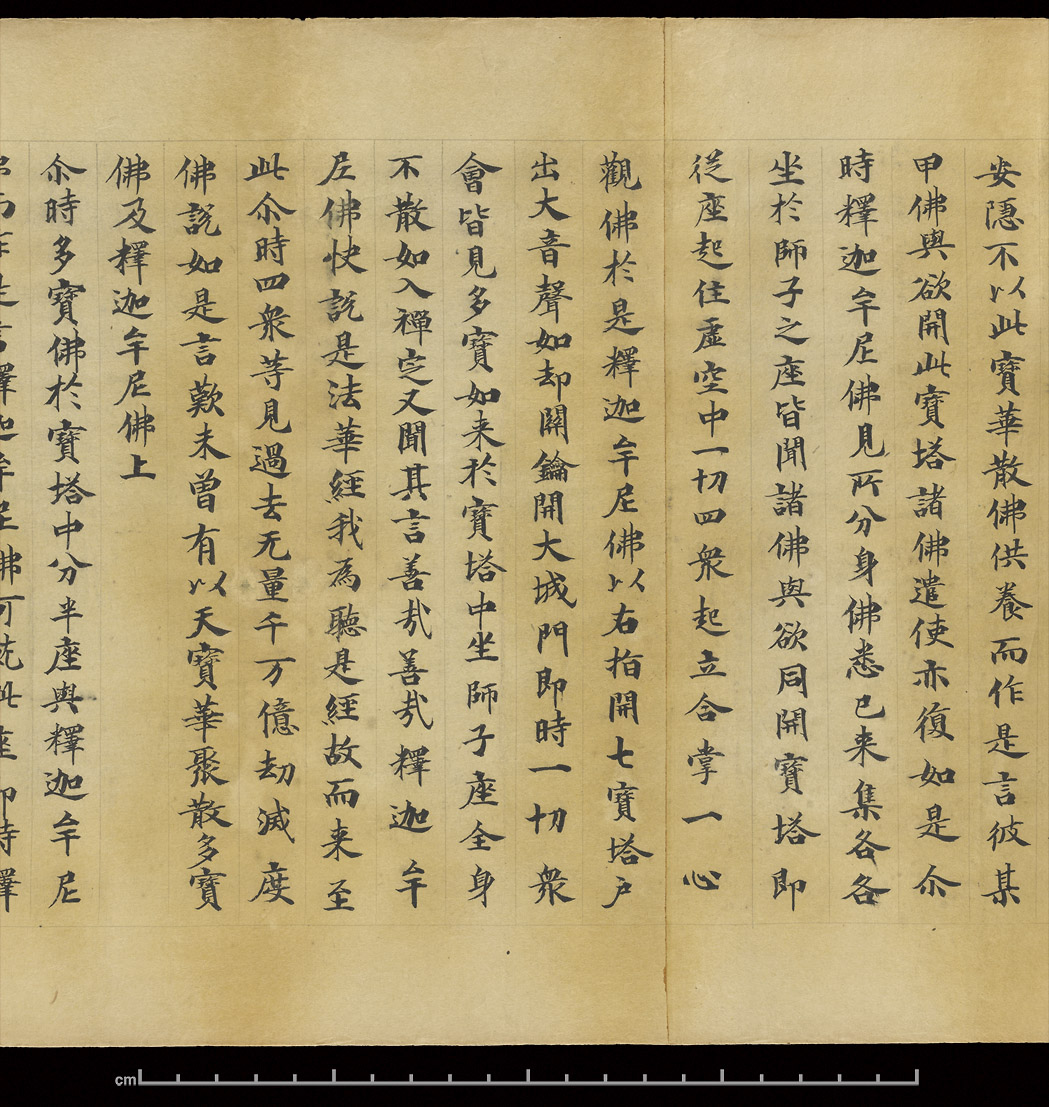 安隠不以此寶華散佛供養而作是言彼某
甲佛與欲開此寶塔諸佛遣使亦復如是尒
時釋迦牟尼佛見所分身佛悉已来集各各
坐於師子之座皆聞諸佛與欲同開寶塔即
従座起住虛空中一切四衆起立合掌一心
觀佛於是釋迦牟尼佛以右指開七寶塔戶
出大音聲如却關鑰開大城門即時一切衆
會皆見多寶如来於寶塔中坐師子座全身
不散如入禪定又聞其言善哉善哉釋迦牟
尼佛快說是法華經我為聽是經故而来至
此尒時四衆等見過去无量千万億劫滅度
佛說如是言歎未曾有以天寶華聚散多寶
佛及釋迦牟尼佛上
尒時多寶佛於寶塔中分半座與釋迦牟尼
佛而作是言釋迦牟尼佛可就此座即時釋